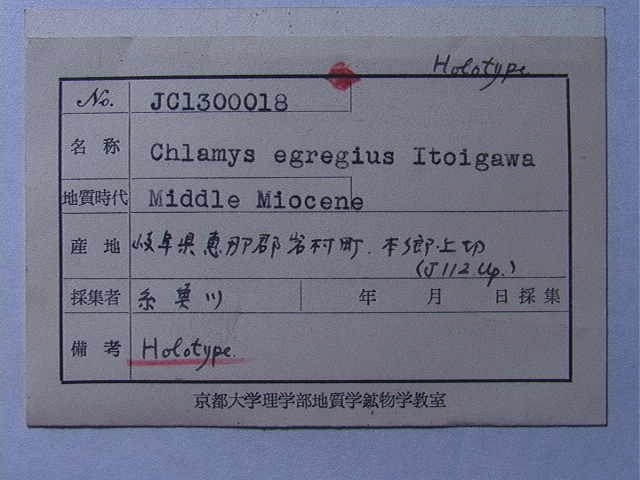 Holotype
No. JC1300018
名称 Chlamys egregius Itoigawa
地質時代 Middle Miocene
産地 岐阜県恵那郡岩村町.本郷上切
(J112 up.)
採集者 糸魚川 年 月 日採集
備考 Holotype.
京都大学理学部地質学鉱物学教室